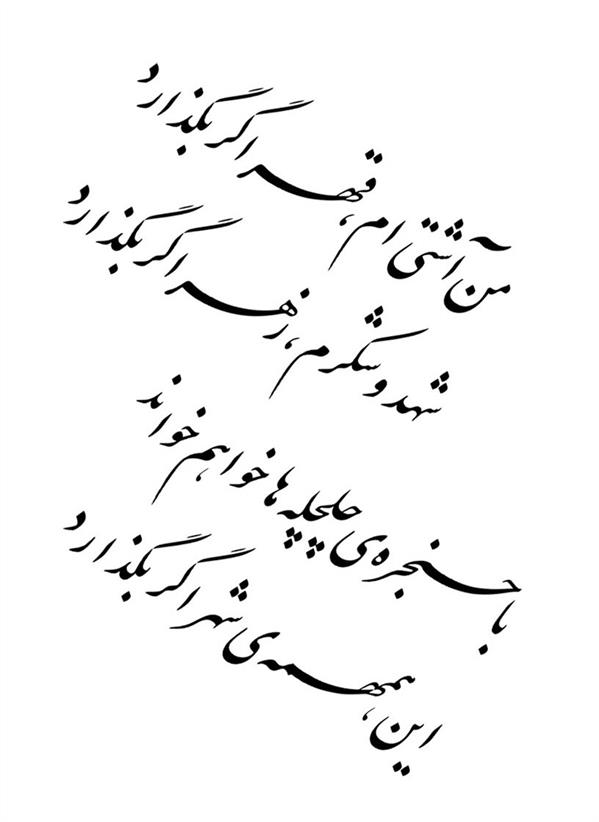 من آشتی ام، قهر اگر بگذارد
شهد و شکرم، زهر اگر بگذارد
با حنجره‌ی چلچله ها خواهم خواند
این، همهمه‌ی شهر اگر بگذارد